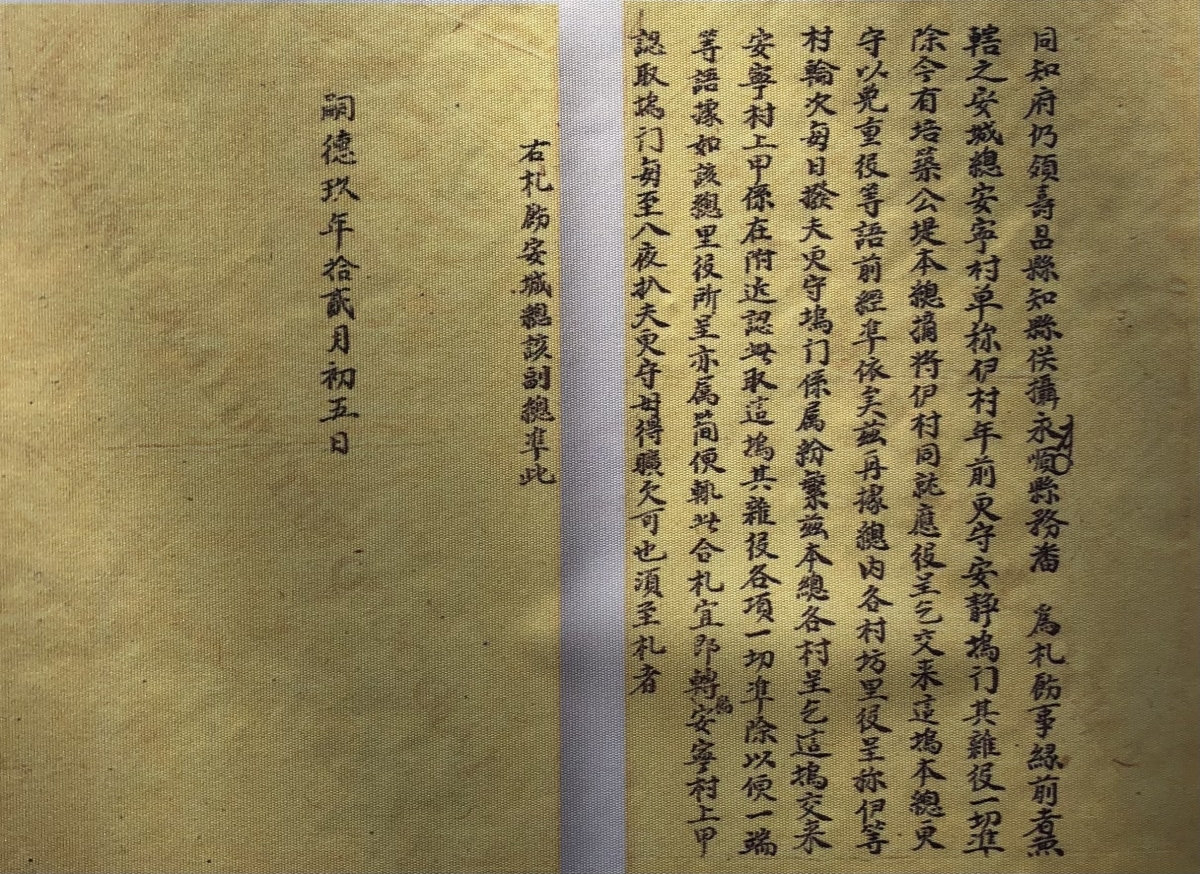 同知府仍領壽昌縣知縣俟攝永順縣務潘 為札飭事緣前者兼
轄之安城總安寧村单称伊村年前更守安靜塢门其雜役一切準
除今有培築公堤本總摘将伊村同就應役呈乞交来這塢本總更
守以免重役等語前經準依矣茲再據總内各村坊里役呈称伊等
村輪次每日撥夫更守塢门係属紛繁茲本總各村呈乞這塢交来
安寧村上甲係在附近認此取這塢其雜役各項一切準除以便一端
等語據如該總里役所呈亦属简便執此合札宜即轉飭安寧村上甲
認取塢门每至八夜扒夫更守毋得曠欠可也須至札者
右札飭安城總該副總準此
嗣德玖年拾貳月初五日